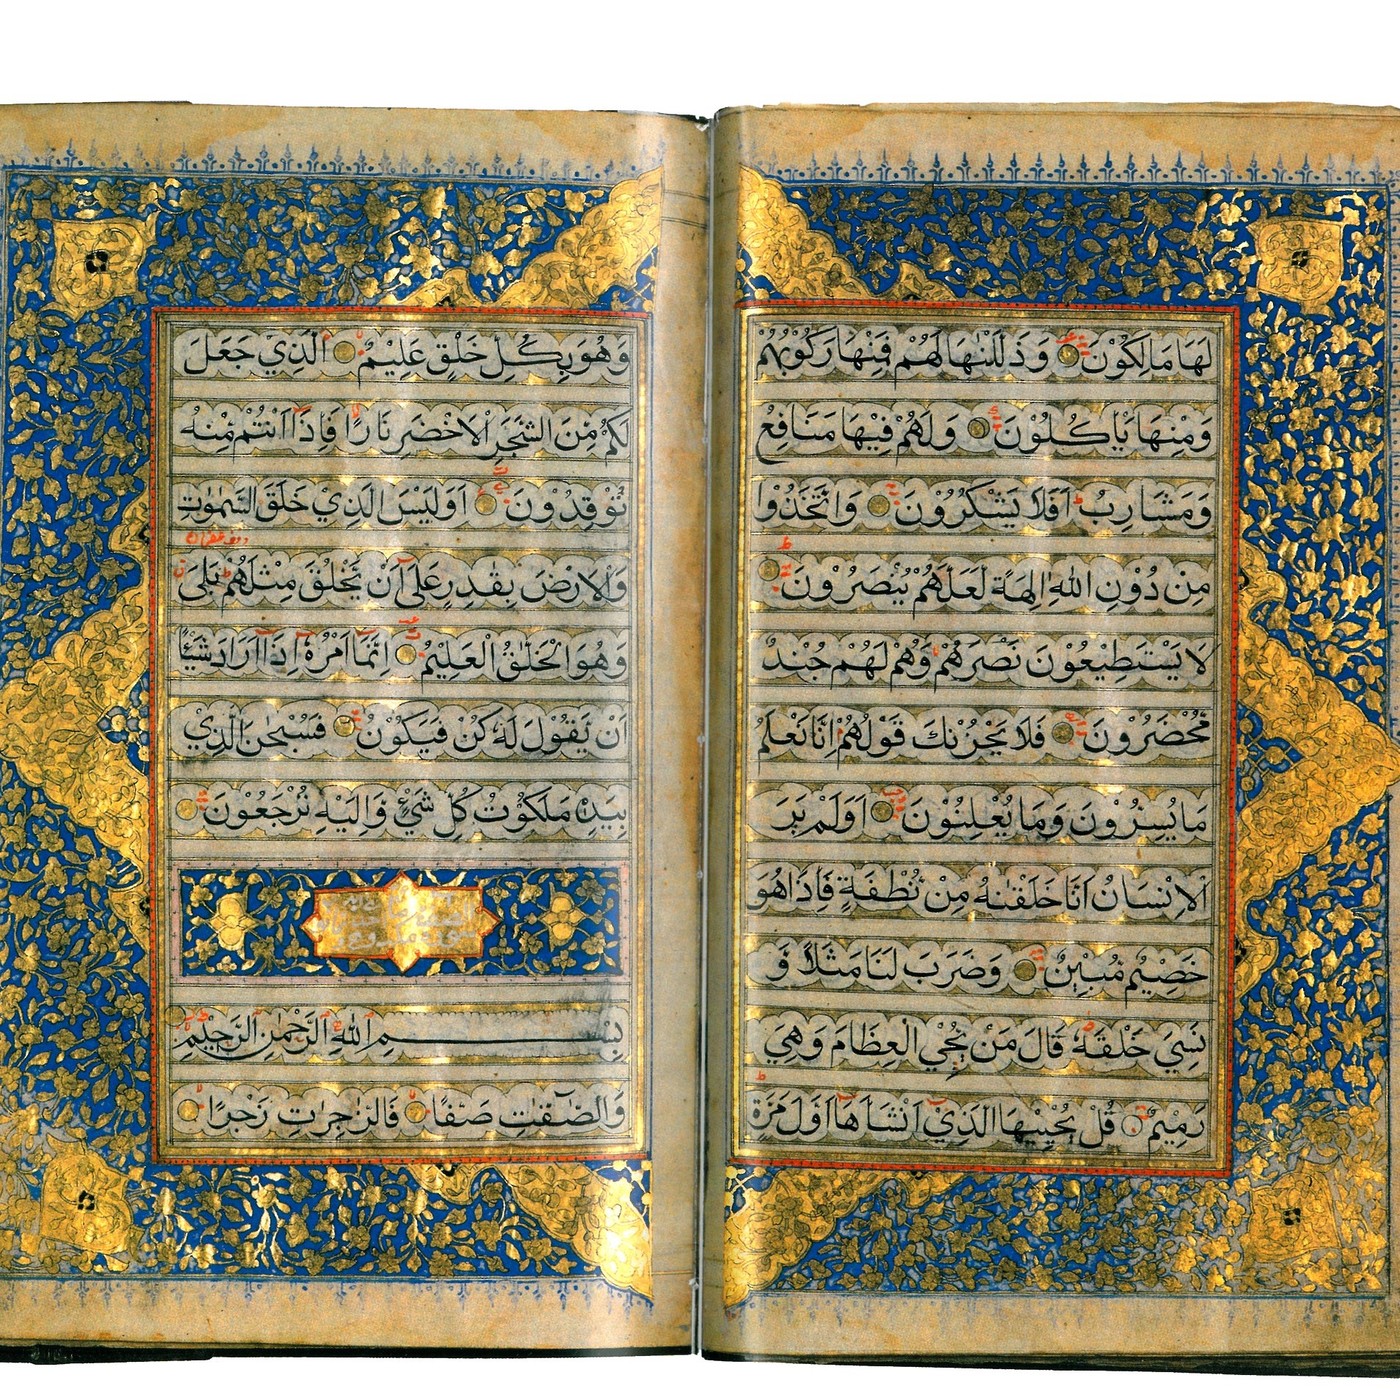 لَهَا مَالِكُوْنَ وَذَلَّلْنٰهَا لَهُمْ فَمِنْهَا رَكُوْبُهُمْ
وَمِنْهَا يَاْكُلُوْنَ وَلَهُمْ فِيْهَا مَنَافِعُ
وَمَشَارِبُ اَفَلَا يَشْكُرُوْنَ وَاتَّخَذُوْا
مِنْ دُوْنِ اللّٰهِ اٰلِهَةً لَعَلَّهُمْ يُنْصَرُوْنَ
لَا يَسْتَطِيْعُوْنَ نَصْرَهُمْ وَهُمْ لَهُمْ جُنْدٌ
مُحْضَرُوْنَ فَلَا يَحْزُنْكَ قَوْلُهُمْ اِنَّا نَعْلَمُ
مَا يُسِرُّوْنَ وَمَا يُعْلِنُوْنَ اَوَلَمْ يَرَ
الْاِنْسَانُ اَنَّا خَلَقْنٰهُ مِنْ نُطْفَةٍ فَاِذَا هُوَ
خَصِيْمٌ مُبِيْنٌ وَضَرَبَ لَنَا مَثَلًا وَ
نَسِيَ خَلْقَهٗ قَالَ مَنْ يُحْيِ الْعِظَامَ وَهِيَ
رَمِيْمٌ قُلْ يُحْيِيْهَا الَّذِيْ اَنْشَاَهَا اَوَّلَ مَرَّةٍ
وَهُوَ بِكُلِّ خَلْقٍ عَلِيْمٌ الَّذِيْ جَعَلَ
لَكُمْ مِنَ الشَّجَرِ الْاَخْضَرِ نَارًا فَاِذَا اَنْتُمْ مِنْهُ
تُوْقِدُوْنَ اَوَلَيْسَ الَّذِيْ خَلَقَ السَّمٰوٰتِ
وَالْاَرْضَ بِقٰدِرٍ عَلٰى اَنْ يَخْلُقَ مِثْلَهُمْ بَلٰى
وَهُوَ الْخَلّٰقُ الْعَلِيْمُ اِنَّمَا اَمْرُهٗ اِذَا اَرَادَ شَيْئًا
اَنْ يَقُوْلَ لَهٗ كُنْ فَيَكُوْنُ فَسُبْحٰنَ الَّذِيْ
بِيَدِهٖ مَلَكُوْتُ كُلِّ شَيْءٍ وَاِلَيْهِ تُرْجَعُوْنَ
بِسْمِ اللّٰهِ الرَّحْمٰنِ الرَّحِيْمِ
وَالصّٰفّٰتِ صَفًّا فَالزّٰجِرٰتِ زَجْرًا